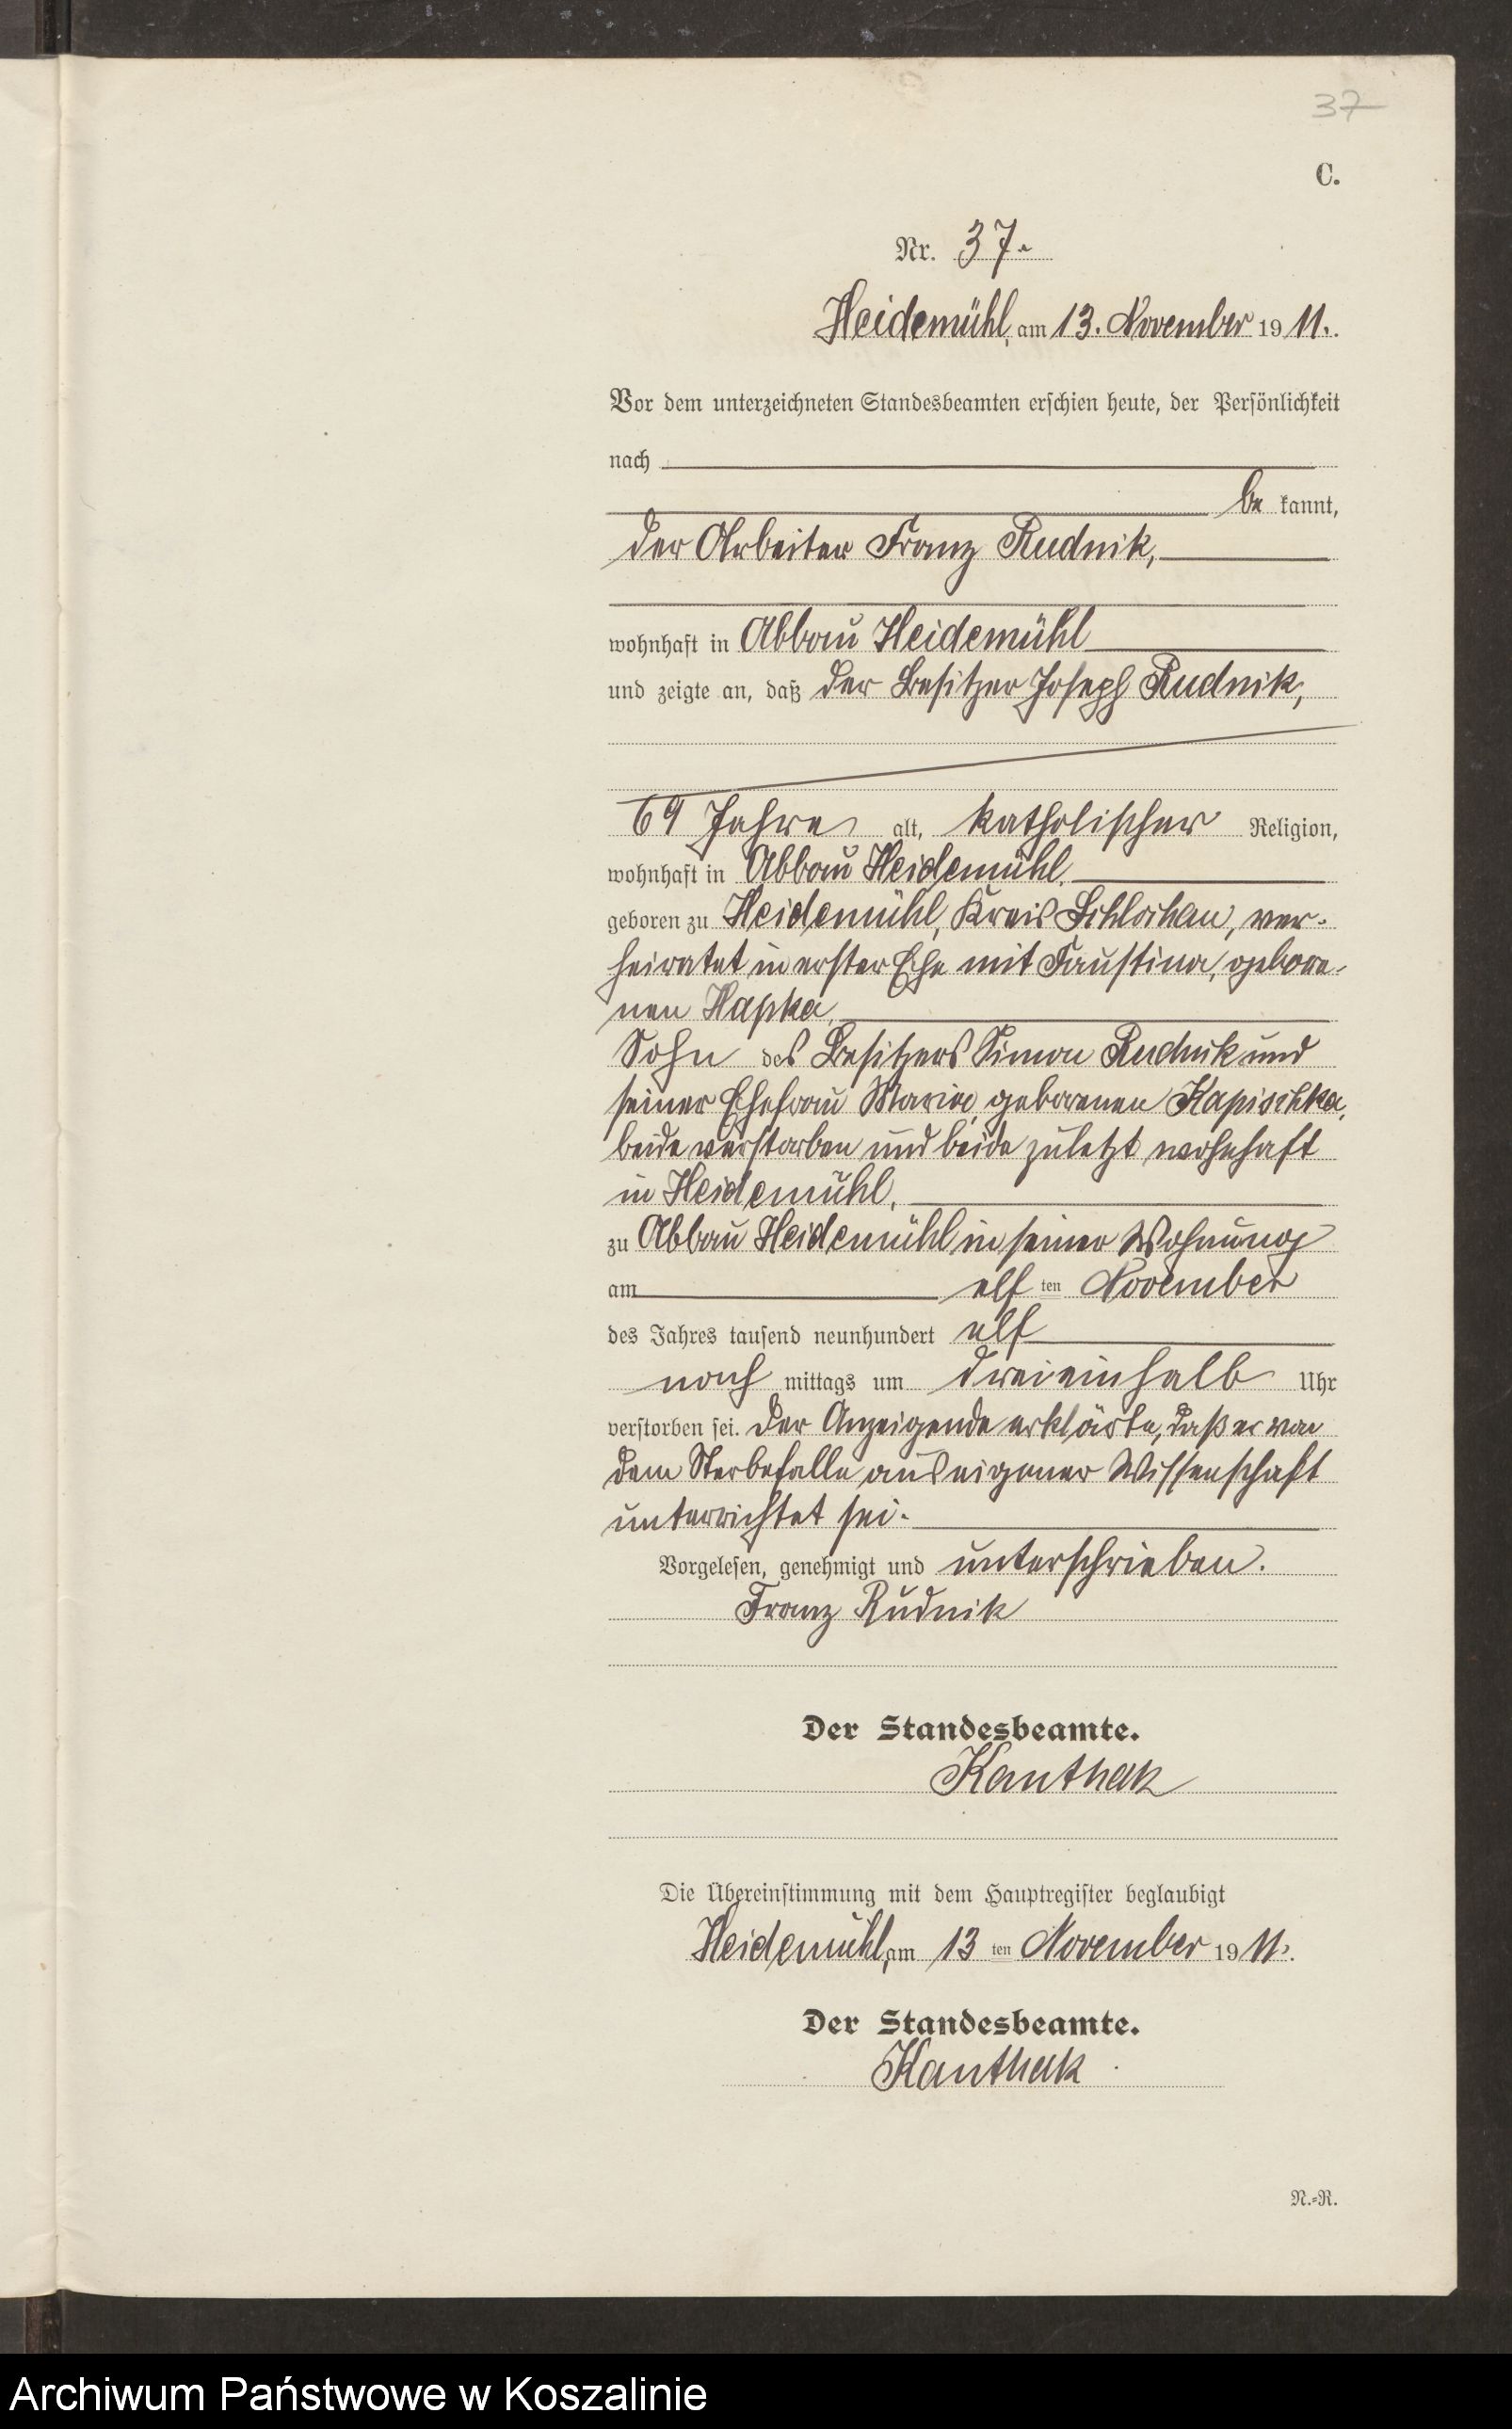 37
C.
Nr. 37.
Heidemühl, am 13. November 1911.
Vor dem unterzeichneten Standesbeamten erschien heute, der Persönlichkeit
nach
be kannt,
der Arbeiter Franz Rudnik,
wohnhaft in Abbau Heidemühl
und zeigte an, daß der Besitzer Joseph Rudnik,
69 Jahre alt, katholischer Religion,
wohnhaft in Abbau Heidemühl,
geboren zu Heidemühl, Kreis Schlochau, ver-
heiratet in erster Ehe mit Faustina, gebore-
nen Hapka,
Sohn des Besitzers Simon Rudnik und
seiner Ehefrau Marie, geborenen Kapischka,
beide verstorben und beide zuletzt wohnhaft
in Heidemühl,
zu Abbau Heidemühl in seiner Wohnung
am elf ten November
des Jahres tausend neunhundert elf
nach mittags um dreieinhalb Uhr
verstorben sei. Der Anzeigende erklärte, daß er von
dem Sterbefalle aus eigener Wissenschaft
unterrichtet sei.
Vorgelesen, genehmigt und unterschrieben.
Franz Rudnik
Der Standesbeamte.
Kanthak
Die Übereinstimmung mit dem Hauptregister beglaubigt
Heidemühl, am 13 ten November 1911.
Der Standesbeamte.
Kanthak
N.-R.
Archiwum Państwowe w Koszalinie